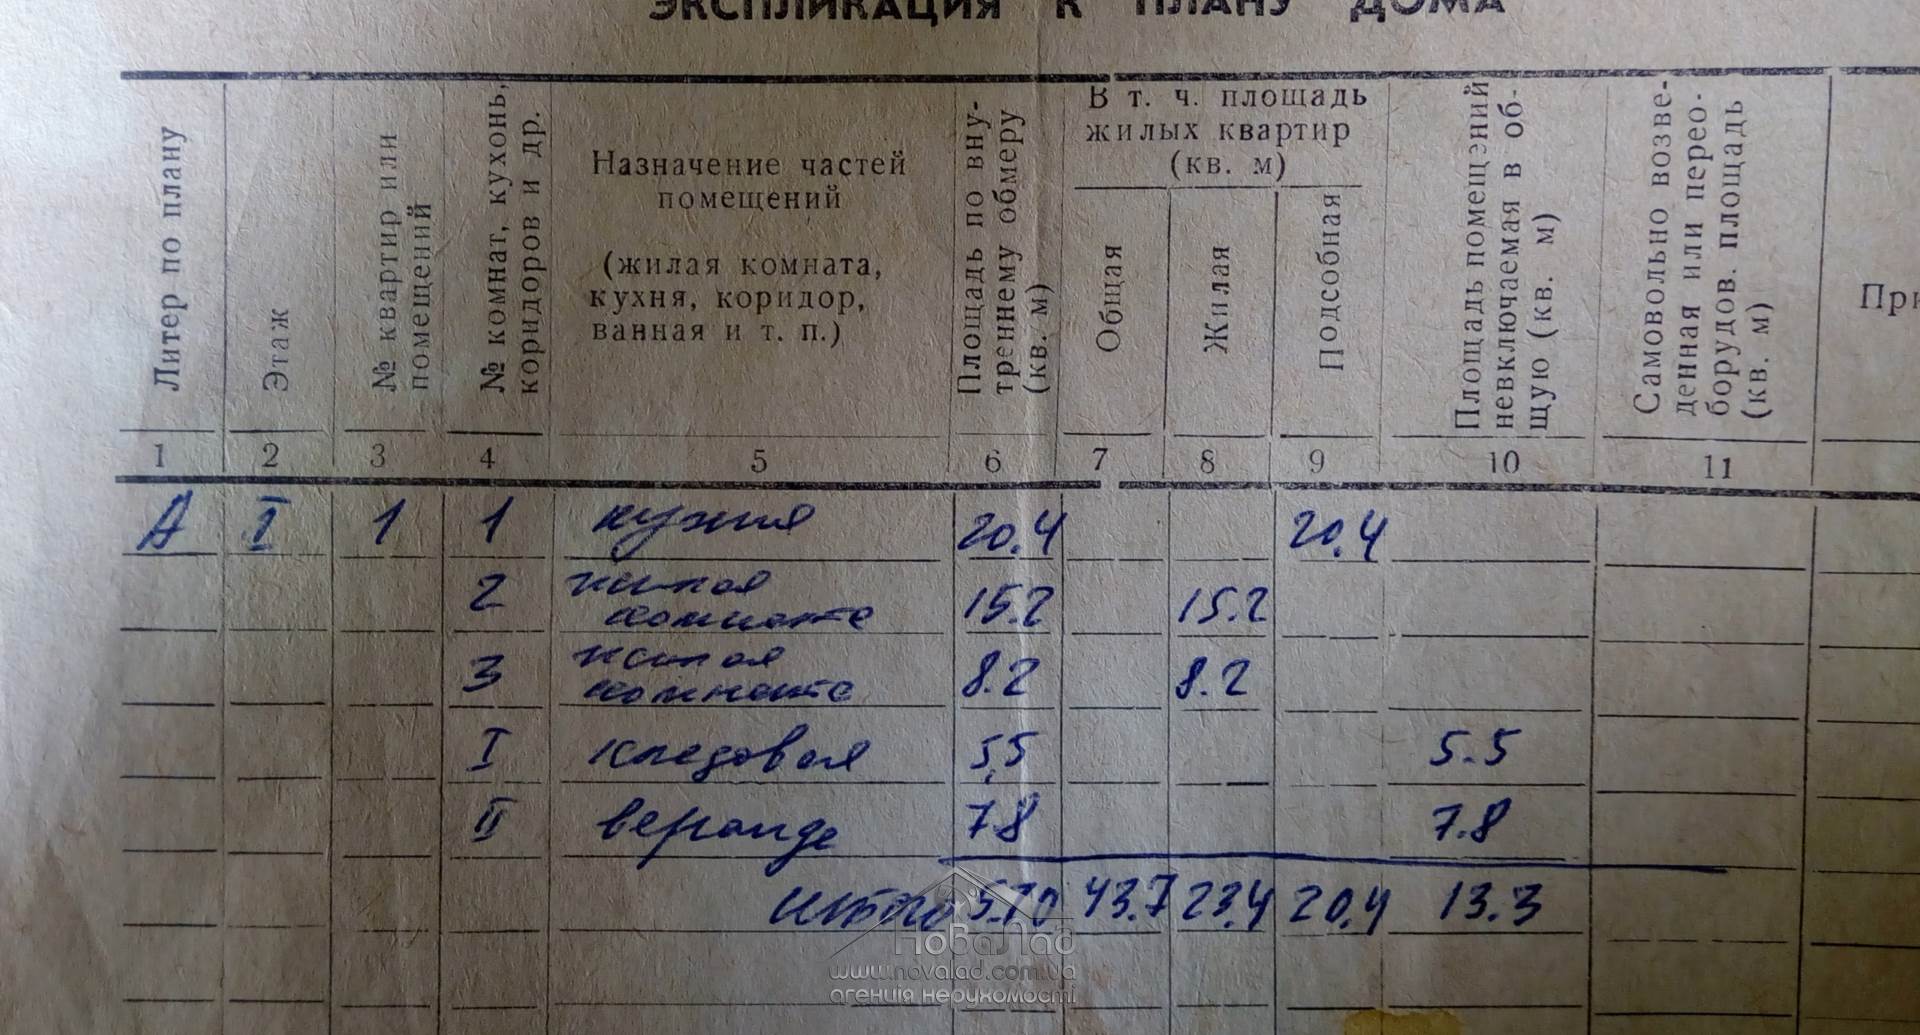 ЭКСПЛИКАЦИЯ К ПЛАНУ ДОМА
Литер по плану
Этаж
№ квартир или
помещений
№ комнат, кухонь,
коридоров и др.
Назначение частей
помещений
(жилая комната,
кухня, коридор,
ванная и т. п.)
Площадь по вну-
треннему обмеру
(кв. м)
В т. ч. площадь
жилых квартир
(кв. м)
Общая
Жилая
Подсобная
Площадь помещений
невключаемая в об-
щую (кв. м)
Самовольно возве-
денная или перео-
борудов. площадь
(кв. м)
1 2 3 4 5 6 7 8 9 10 11
А I 1 1 кухня 20.4 20.4
2 жилая
комната 15.2 15.2
3 жилая
комната 8.2 8.2
I кладовая 5,5 5.5
II веранда 7.8 7.8
итого 43.7 23.4 20.4 13.3
НоваЛад
www.novalad.com.ua
агенція нерухомості